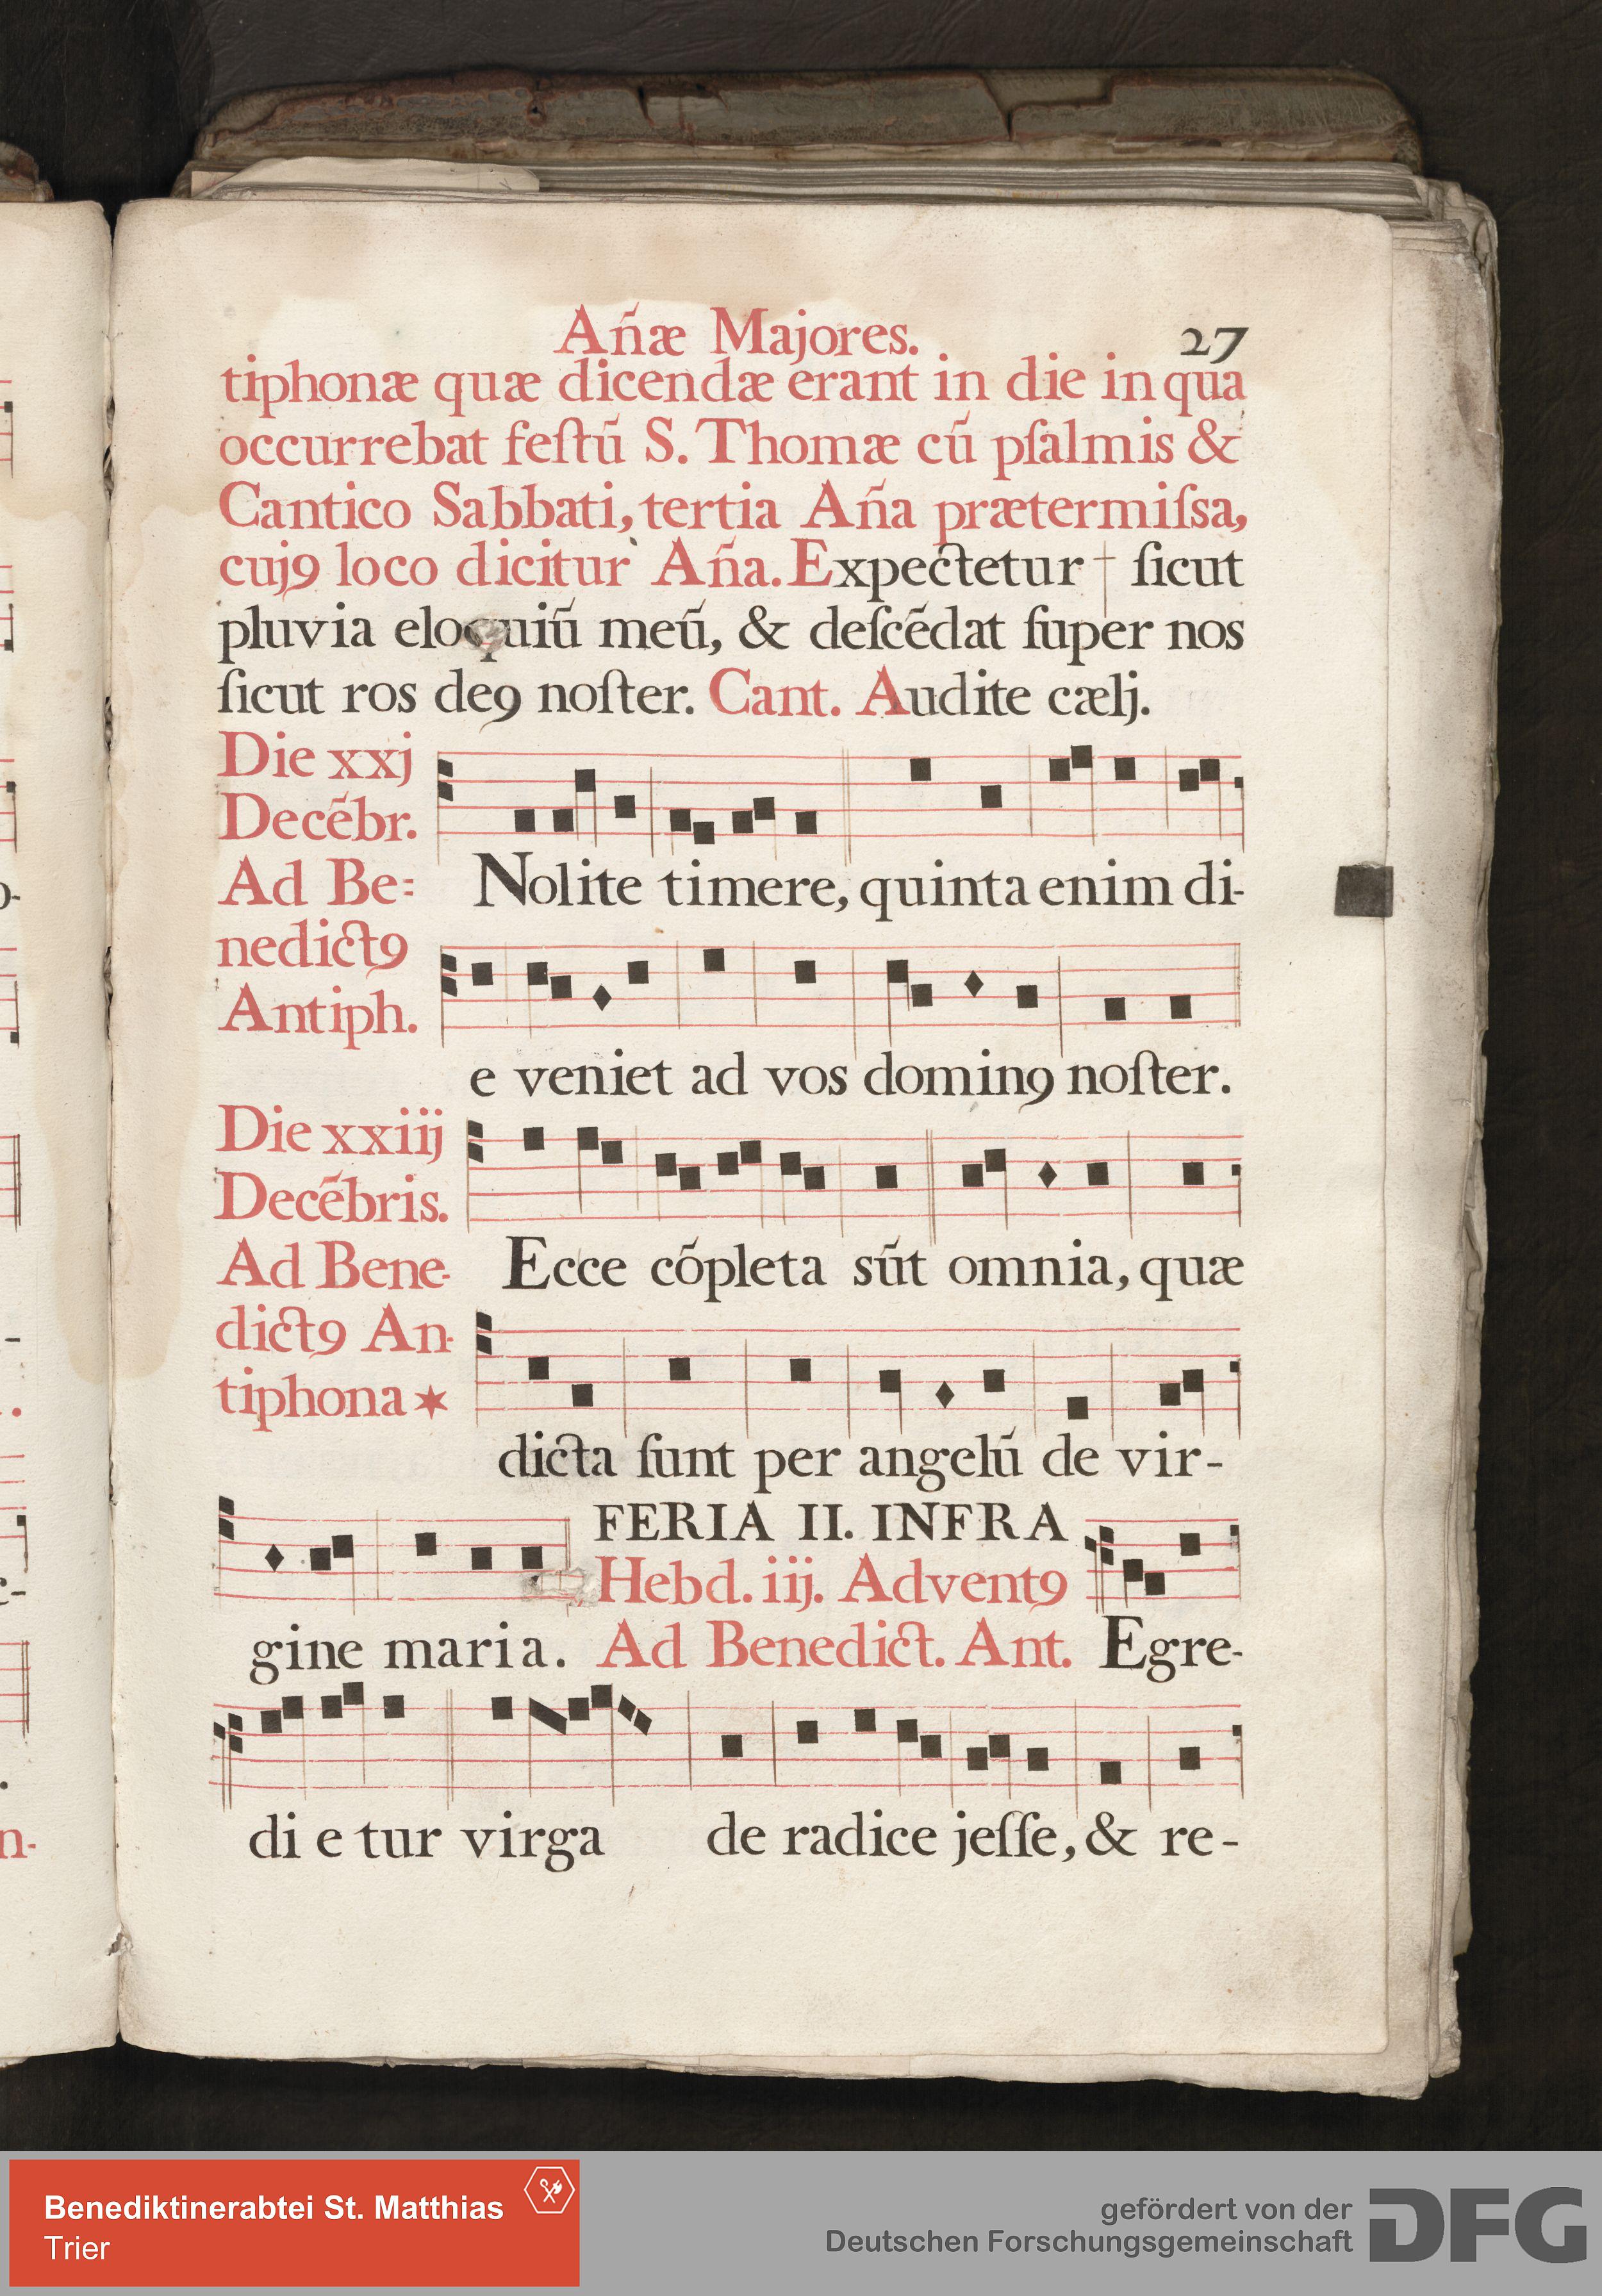 Añæ Majores. 27
tiphonæ quæ dicendæ erant in die in qua
occurrebat feſtū S. Thomæ cū pſalmis &
Cantico Sabbati, tertia Aña prætermiſsa,
cujꝯ loco dicitur Aña. Expectetur † ſicut
pluvia eloquiū meū, & deſcēdat ſuper nos
ſicut ros deꝯ noſter. Cant. Audite cælj.
Die xxj
Decēbr.
Ad Be=
nedictꝯ
Antiph.
Nolite timere, quinta enim di-
e veniet ad vos dominꝯ noſter.
Die xxiij
Decēbris.
Ad Bene-
dictꝯ An-
tiphona ✶
Ecce cōpleta sūt omnia, quæ
dicta ſunt per angelū de vir-
gine maria.
FERIA II. INFRA
Hebd. iij. Adventꝯ
Ad Benedict. Ant. Egre-
di e tur virga de radice jeſſe, & re-
Benediktinerabtei St. Matthias
Trier
gefördert von der
Deutschen Forschungsgemeinschaft
DFG